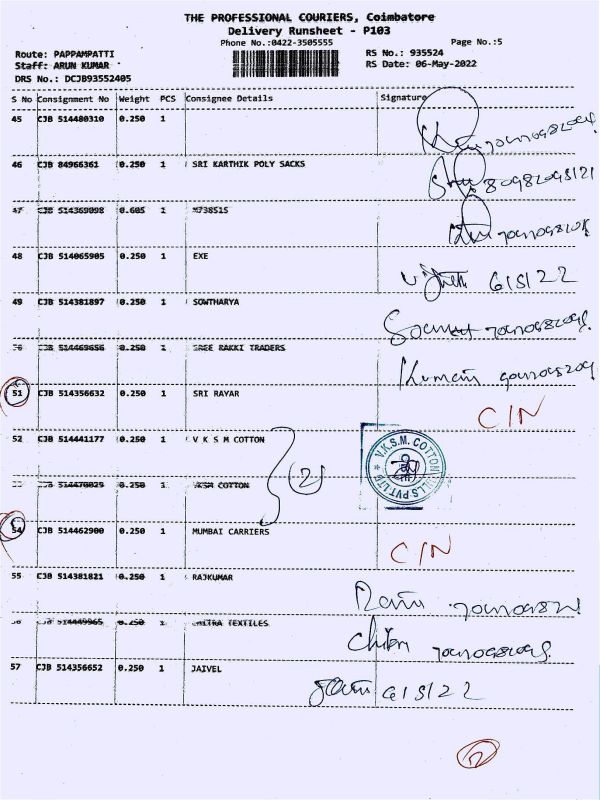 THE PROFESSIONAL COURIERS, Coimbatore
Delivery Runsheet - P103
Phone No.:0422-3505555
Page No.:5
Route: PAPPAMPATTI
RS No.: 935524
Staff: ARUN KUMAR
RS Date: 06-May-2022
DRS No.: DCJB93552405
S No Consignment No Weight PCS Consignee Details Signature
45 CJB 514480310 0.250 1
46 CJB 84966361 0.250 1 SRI KARTHIK POLY SACKS
47 CJB 514369098 0.605 1 M738515
48 CJB 514065905 0.250 1 EXE
6/5/22
49 CJB 514381897 0.250 1 SOWTHARYA
CJB 514469656 0.250 1 SREE RAKKI TRADERS
51 CJB 514356632 0.250 1 SRI RAYAR
C/N
52 CJB 514441177 0.250 1 V K S M COTTON
(2)
V.K.S.M. COTTON MILLS PVT LTD
CJB 514470025 0.250 1 VKSM COTTON
54 CJB 514462900 0.250 1 MUMBAI CARRIERS
C/N
55 CJB 514381821 0.250 1 RAJKUMAR
CJB 514449965 0.250 1 CHITRA TEXTILES
57 CJB 514356652 0.250 1 JAIVEL
6/5/22